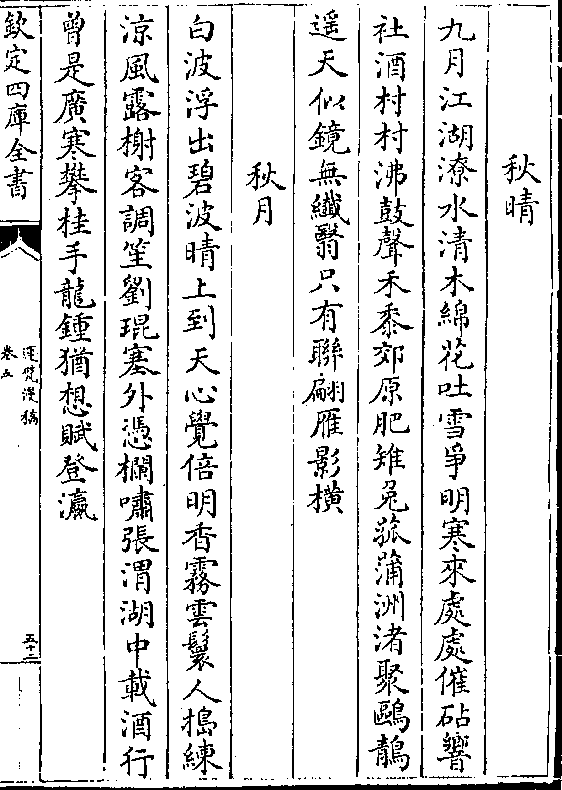 秋晴
九月江湖潦水清木綿花吐雪爭明寒來處處催砧響
社酒村村沸鼓聲禾黍郊原肥雉兔菰蒲洲渚聚鷗鶄
遥天似鏡無纖翳只有聯翩雁影橫
秋月
白波浮出碧波晴上到天心覺倍明香霧雲鬟人搗練
涼風露榭客調笙劉琨塞外憑欄嘯張渭湖中載酒行
曾是廣寒攀桂手龍鍾猶想賦登瀛
欽定四庫全書
運甓漫稿
卷五
五十二